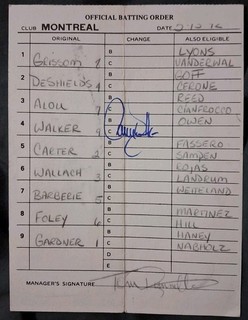 OFFICIAL BATTING ORDER
CLUB MONTREAL DATE
ORIGINAL CHANGE ALSO ELIGIBLE
1 GRISSOM 8 B LYONS
C VANDERWAL
2 DESHIELDS 4 B GOFF
C CERONE
3 ALOU 7 B REED
C CIANFROCCO
4 WALKER 9 B OWEN
C
5 CARTER 2 B FASSERO
C SAMPEN
6 WALLACH 3 B ROJAS
C LANDRUM
7 BARBERIE 5 B WETTELAND
C
8 FOLEY 6 B MARTINEZ
C HILL
9 GARDNER 1 B HANEY
C NABHOLZ
D
E
MANAGER'S SIGNATURE